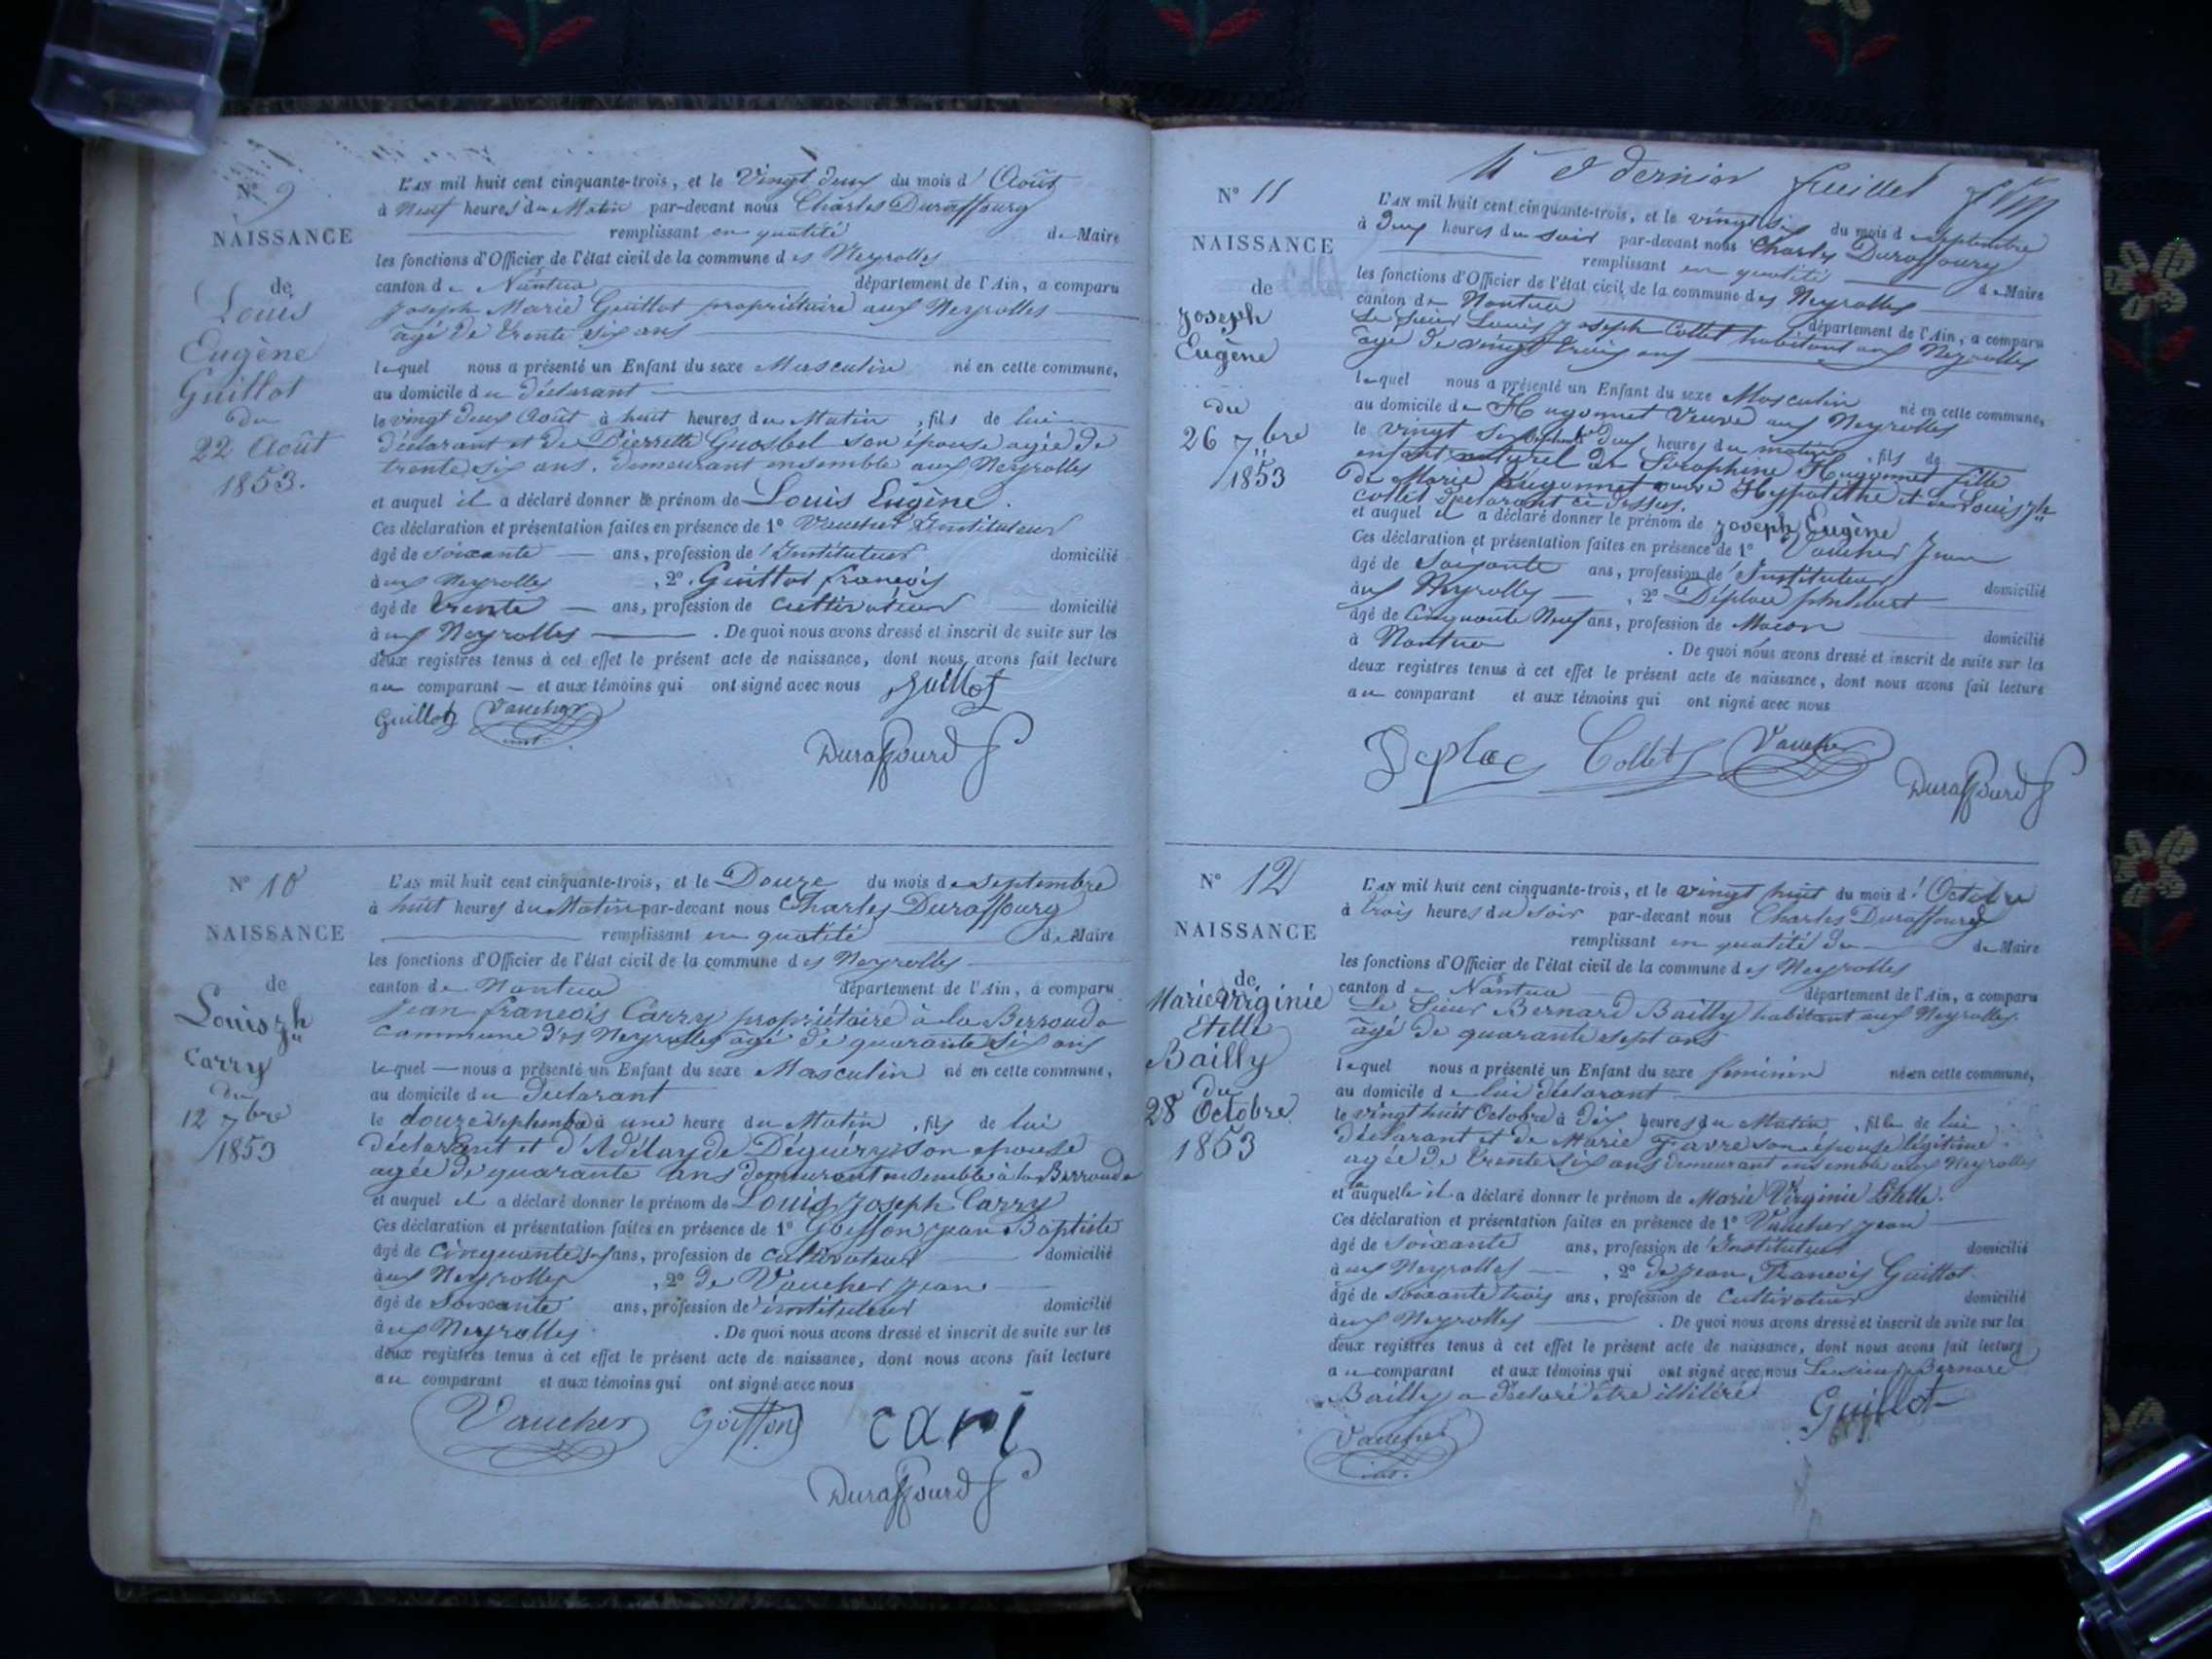 N° 9
NAISSANCE
de
Louis
Eugène
Guillot
du
22 Août
1853.
L'AN mil huit cent cinquante-trois, et le Vingt deux du mois d'Août
à Neuf heures du Matin par-devant nous Charles Duraffourg
remplissant en qualité de Maire
les fonctions d'Officier de l'état civil de la commune des Neyrolles
canton de Nantua département de l'Ain, a comparu
Joseph Marie Guillot propriétaire aux Neyrolles
âgé de trente six ans
lequel nous a présenté un Enfant du sexe Masculin né en cette commune,
au domicile du déclarant
le vingt deux Août à huit heures du Matin, fils de lui
déclarant et de Pierrette son épouse agée de
trente six ans, demeurant ensemble aux Neyrolles
et auquel il a déclaré donner le prénom de Louis Eugène.
Ces déclaration et présentation faites en présence de 1° Vaucher Instituteur
âgé de soixante ans, profession de Instituteur domicilié
aux Neyrolles, 2° Guillot françois
âgé de trente ans, profession de cultivateur domicilié
aux Neyrolles. De quoi nous avons dressé et inscrit de suite sur les
deux registres tenus à cet effet le présent acte de naissance, dont nous avons fait lecture
au comparant et aux témoins qui ont signé avec nous Guillot
Guillot Vaucher
Duraffourd
N° 10
NAISSANCE
de
Louis Jh
Carry
du
12 7bre
1853
L'AN mil huit cent cinquante-trois, et le Douze du mois de septembre
à huit heures du Matin par-devant nous Charles Duraffourg
remplissant en qualité de Maire
les fonctions d'Officier de l'état civil de la commune des Neyrolles
canton de Nantua département de l'Ain, a comparu
Jean françois Carry propriétaire à la Berroude
commune des Neyrolles agé de quarante six ans
lequel nous a présenté un Enfant du sexe Masculin né en cette commune,
au domicile du déclarant
le douze septembre à une heure du Matin, fils de lui
déclarant et d'Adélayde son épouse
agée de quarante ans demeurant ensemble à la Berroude
et auquel il a déclaré donner le prénom de Louis Joseph Carry
Ces déclaration et présentation faites en présence de 1° Goiffon Jean Baptiste
âgé de cinquante six ans, profession de cultivateur domicilié
aux Neyrolles, 2° de Vaucher Jean
âgé de soixante ans, profession de instituteur domicilié
aux Neyrolles. De quoi nous avons dressé et inscrit de suite sur les
deux registres tenus à cet effet le présent acte de naissance, dont nous avons fait lecture
au comparant et aux témoins qui ont signé avec nous
Vaucher Goiffon cari
Duraffourd
et dernier feuillet
N° 11
NAISSANCE
de
Joseph
Eugène
du
26 7bre
1853
L'AN mil huit cent cinquante-trois, et le vingt six du mois de septembre
à deux heures du soir par-devant nous Charles Duraffourg
remplissant en qualité de Maire
les fonctions d'Officier de l'état civil de la commune des Neyrolles
canton de Nantua département de l'Ain, a comparu
Le Sieur Louis Joseph Collet habitant aux Neyrolles
âgé de vingt trois ans
lequel nous a présenté un Enfant du sexe Masculin né en cette commune,
au domicile de Hugonnet Veuve aux Neyrolles
le vingt six septembre deux heures du matin, fils de
enfant naturel de Séraphine Hugonnet fille
de Marie Hugonnet veuve Hyppolithe et de Louis Jh
Collet déclarant ci dessus.
et auquel il a déclaré donner le prénom de Joseph Eugène
Ces déclaration et présentation faites en présence de 1° Vaucher Jean
âgé de Soixante ans, profession de Instituteur domicilié
aux Neyrolles, 2° Déplace philibert
âgé de Cinquante Neuf ans, profession de Macon domicilié
à Nantua. De quoi nous avons dressé et inscrit de suite sur les
deux registres tenus à cet effet le présent acte de naissance, dont nous avons fait lecture
au comparant et aux témoins qui ont signé avec nous
Deplace Collet Vaucher
Duraffourd
N° 12
NAISSANCE
de
Marie Virginie
Stelle
Bailly
du
28 Octobre
1853
L'AN mil huit cent cinquante-trois, et le vingt huit du mois d'Octobre
à trois heures du soir par-devant nous Charles Duraffourg
remplissant en qualité du de Maire
les fonctions d'Officier de l'état civil de la commune des Neyrolles
canton de Nantua département de l'Ain, a comparu
Le Sieur Bernard Bailly habitant aux Neyrolles.
âgé de quarante sept ans
lequel nous a présenté un Enfant du sexe féminin né en cette commune,
au domicile de lui déclarant
le vingt huit Octobre à dix heures du Matin, fille de lui
déclarant et de Marie Favre son épouse légitime
agée de trente six ans demeurant ensemble aux Neyrolles
et à laquelle il a déclaré donner le prénom de Marie Virginie Stelle.
Ces déclaration et présentation faites en présence de 1° Vaucher Jean
âgé de soixante ans, profession de Instituteur domicilié
aux Neyrolles, 2° de Jean Francois Guillot
âgé de soixante trois ans, profession de cultivateur domicilié
aux Neyrolles. De quoi nous avons dressé et inscrit de suite sur les
deux registres tenus à cet effet le présent acte de naissance, dont nous avons fait lecture
au comparant et aux témoins qui ont signé avec nous Le sieur Bernard
Bailly a déclaré être illitéré.
Guillot
Vaucher
inst.